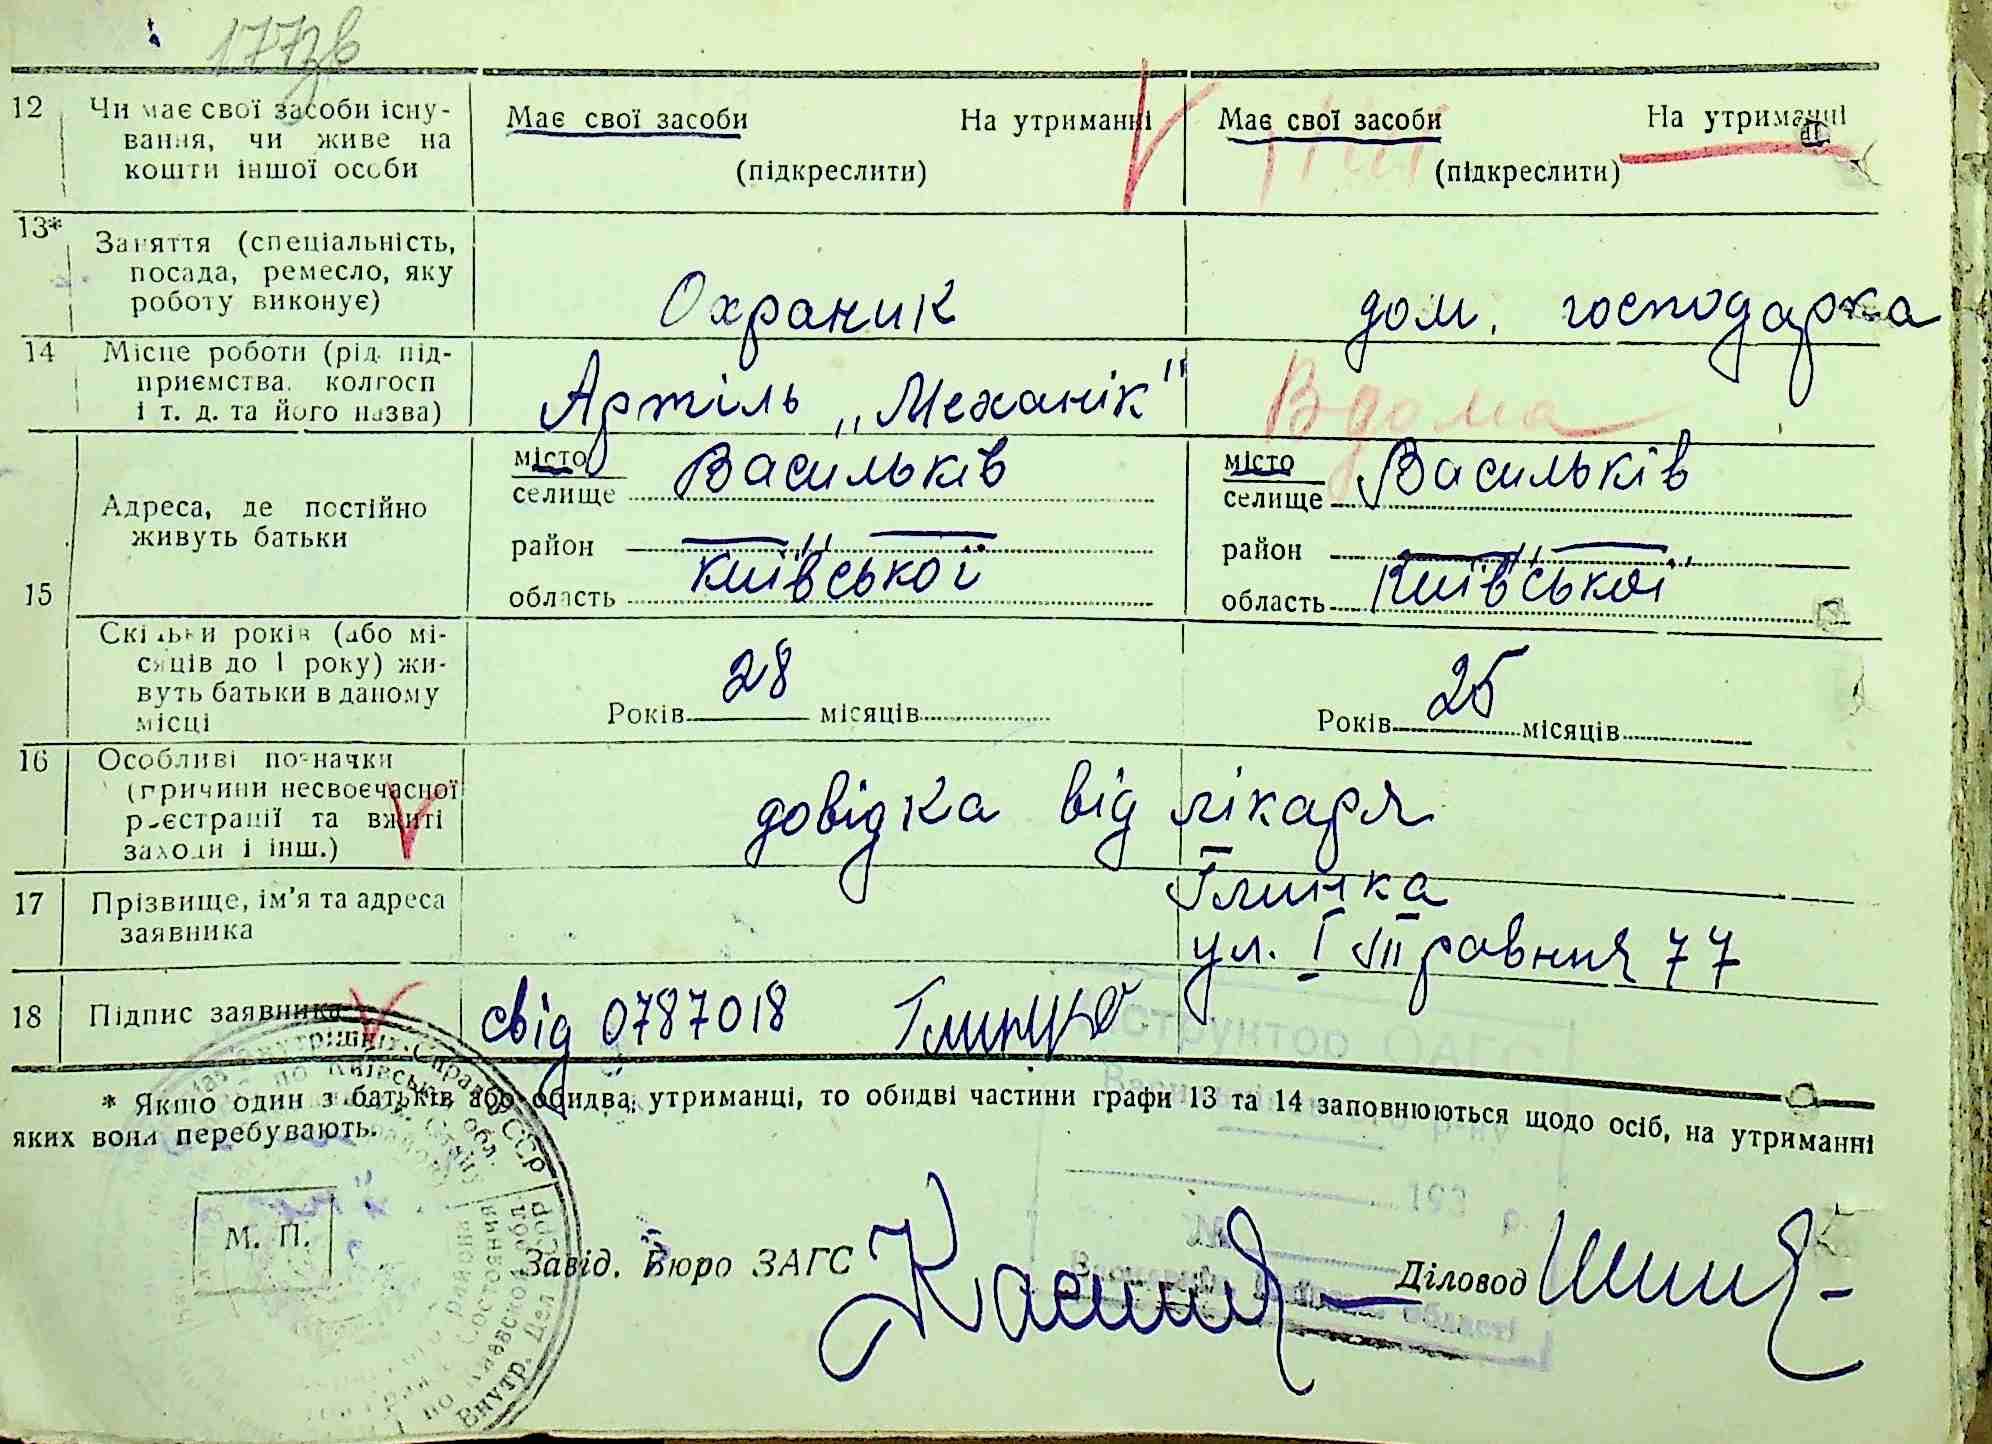 177зв
12 Чи має свої засоби існу-
вання, чи живе на
кошти іншої особи
Має свої засоби На утриманні
(підкреслити)
Має свої засоби На утриманні
(підкреслити)
13* Заняття (спеціальність,
посада, ремесло, яку
роботу виконує)
Охраник
дом. господарка
14 Місце роботи (рід під-
приємства, колгосп
і т. д. та його назва)
Артіль „Механік"
Вдома
15
Адреса, де постійно
живуть батьки
місто
селище Васильків
район —„—
область Київської
місто
селище Васильків
район —„—
область Київської
Скільки років (або мі-
сяців до 1 року) жи-
вуть батьки в даному
місці
Років 28 місяців
Років 25 місяців
16 Особливі позначки
(причини несвоєчасної
реєстрації та вжиті
заходи і інш.)
довідка від лікаря
17 Прізвище, ім'я та адреса
заявника
Глинка
ул. І Травння 77
18 Підпис заявника
свід 0787018
* Якщо один з батьків або обидва утриманці, то обидві частини графи 13 та 14 заповнюються щодо осіб, на утриманні
яких вони перебувають.
М. П.
Завід. Бюро ЗАГС
Діловод